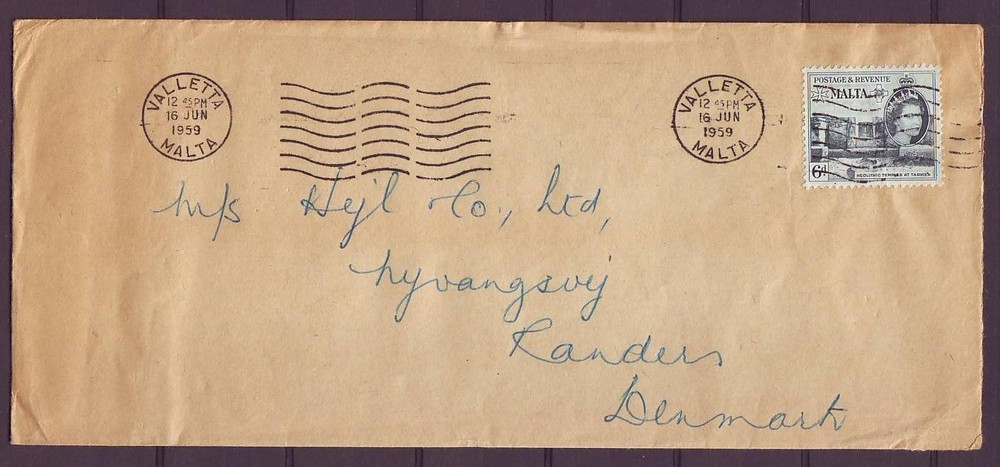 VALLETTA
12 45 PM
16 JUN
1959
MALTA
VALLETTA
12 45 PM
16 JUN
1959
MALTA
POSTAGE & REVENUE
MALTA
6d
NEOLITHIC TEMPLES AT TARXIEN
M/s Hejl Co., Ltd,
Nyvangsvej
Randers
Denmark